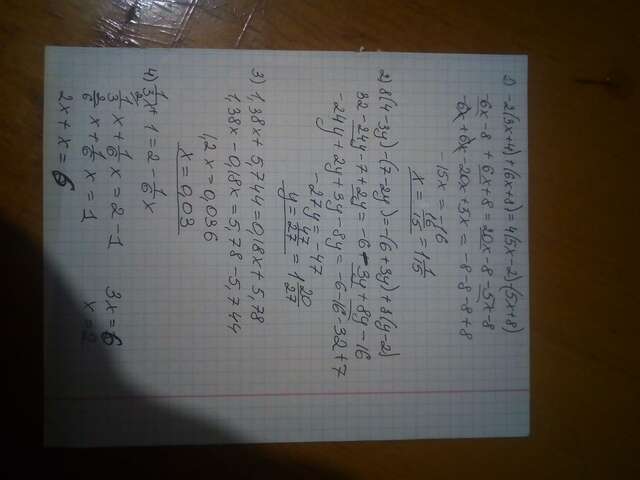 1) -2(3x+4)+(6x+8)=4(5x-2)-(5x+8)
-6x-8+6x+8=20x-8-5x-8
-6x+6x-20x+5x=-8-8-8+8
-15x=-16
x=16/15=1 1/15
2) 8(4-3y)-(7-2y)=-(6+3y)+8(y-2)
32-24y-7+2y=-6-3y+8y-16
-24y+2y+3y-8y=-6-16-32+7
-27y=-47
y=47/27=1 20/27
3) 1,38x+5,744=0,18x+5,78
1,38x-0,18x=5,78-5,744
1,2x=0,036
x=0,03
4) 1/3x+1=2-1/6x
1/3x+1/6x=2-1 3x=6
2/6x+1/6x=1 x=2
2x+x=6